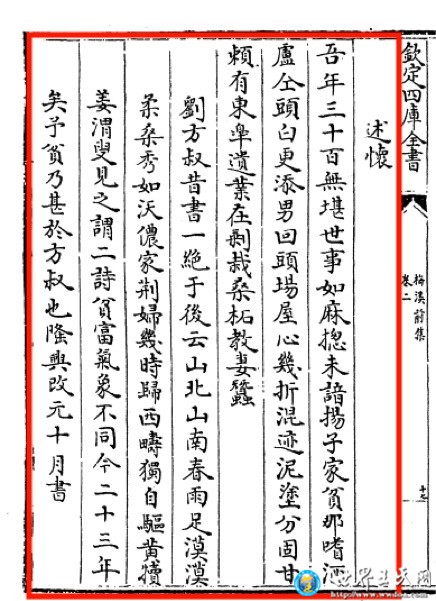 欽定四庫全書
梅溪前集
卷二
述懷
吾年三十百無堪世事如麻揔未諳揚子家貧那嗜酒
盧仝頭白更添男回頭場屋心幾折混迹泥塗分固甘
頼有東臯遺業在剩栽桑柘教妻蠶
劉方叔昔書一絶于後云山北山南春雨足漠漠
柔桑秀如沃儂家荆婦幾時歸西疇獨自驅黄犢
姜渭叟見之謂二詩貧富氣象不同今二十三年
矣予貧乃甚於方叔也隆興改元十月書
世界王天网